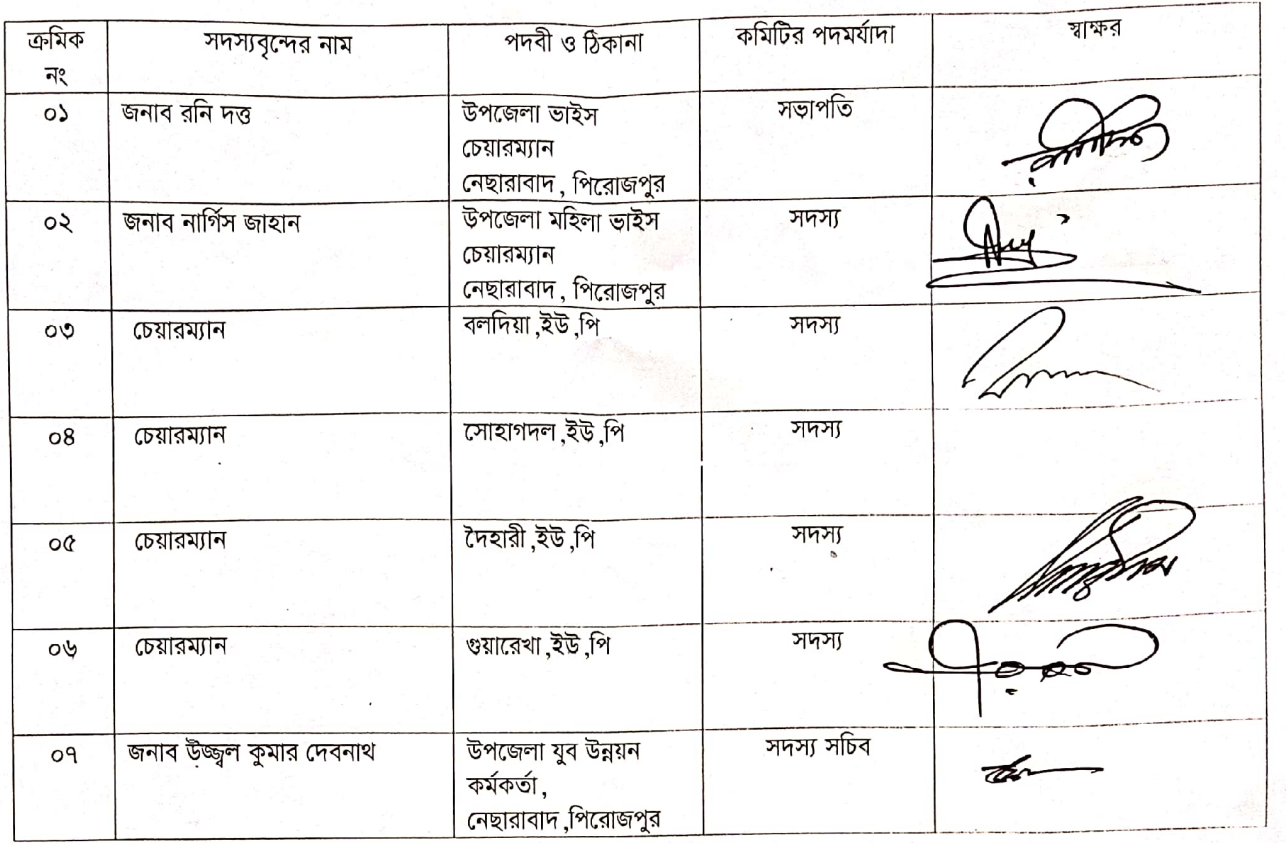 ক্রমিক নং | সদস্যবৃন্দের নাম | পদবী ও ঠিকানা | কমিটির পদমর্যাদা | স্বাক্ষর
০১ | জনাব রনি দত্ত | উপজেলা ভাইস | সভাপতি
চেয়ারম্যান
নেছারাবাদ, পিরোজপুর
০২ | জনাব নার্গিস জাহান | উপজেলা মহিলা ভাইস | সদস্য
চেয়ারম্যান
নেছারাবাদ, পিরোজপুর
০৩ | চেয়ারম্যান | বলদিয়া,ইউ,পি | সদস্য
০৪ | চেয়ারম্যান | সোহাগদল,ইউ,পি | সদস্য
০৫ | চেয়ারম্যান | দৈহারী,ইউ,পি | সদস্য
০৬ | চেয়ারম্যান | গুয়ারেখা,ইউ,পি | সদস্য
০৭ | জনাব উজ্জ্বল কুমার দেবনাথ | উপজেলা যুব উন্নয়ন | সদস্য সচিব
কর্মকর্তা,
নেছারাবাদ,পিরোজপুর